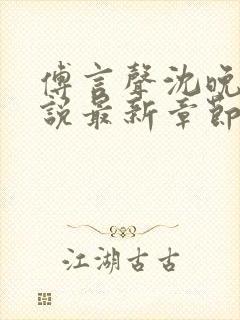 傅言聲沈晚
說最新章節
江湖古古